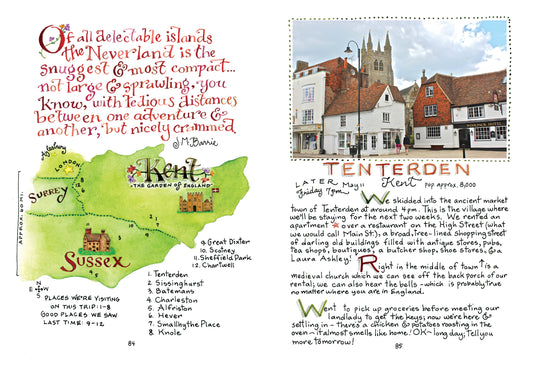 Of all delectable islands
the Neverland is the
snuggest & most compact...
not large & sprawling, you
know, with tedious distances
between one adventure &
another, but nicely crammed.
J M Barrie
LONDON
SURREY
Kent
THE GARDEN OF ENGLAND
SUSSEX
APPROX. 60 MI.
N
E
W
S
PLACES WE'RE VISITING
ON THIS TRIP: 1-8
GOOD PLACES WE SAW
LAST TIME: 9-12
1. Tenterden
2. Sissinghurst
3. Batemans
4. Charleston
5. Alfriston
6. Hever
7. Smallhythe Place
8. Knole
9. Great Dixter
10. Scotney
11. Sheffield Park
12. Chartwell
84
TENTERDEN
Kent
Pop approx. 8,000
LATER May 11
Friday 7pm
We skidded into the ancient market
town of Tenterden at around 4pm. This is the village where
we'll be staying for the next two weeks. We rented an
apartment over a restaurant on the High Street (what
we would call Main St.) a broad, tree-lined shopping street
of darling old buildings filled with antique stores, pubs,
Tea shops, boutiques, a butcher shop, shoe stores, & a
Laura Ashley! Right in the middle of town ↑ is a
medieval church which we can see off the back porch of our
rental; we can also hear the bells - which is probably true
no matter where you are in England.
Went to pick up groceries before meeting our
landlady to get the keys; now we're here &
settling in - there's a chicken & potatoes roasting in the
oven - it almost smells like home! OK - long day; Tell you
more tomorrow!
85